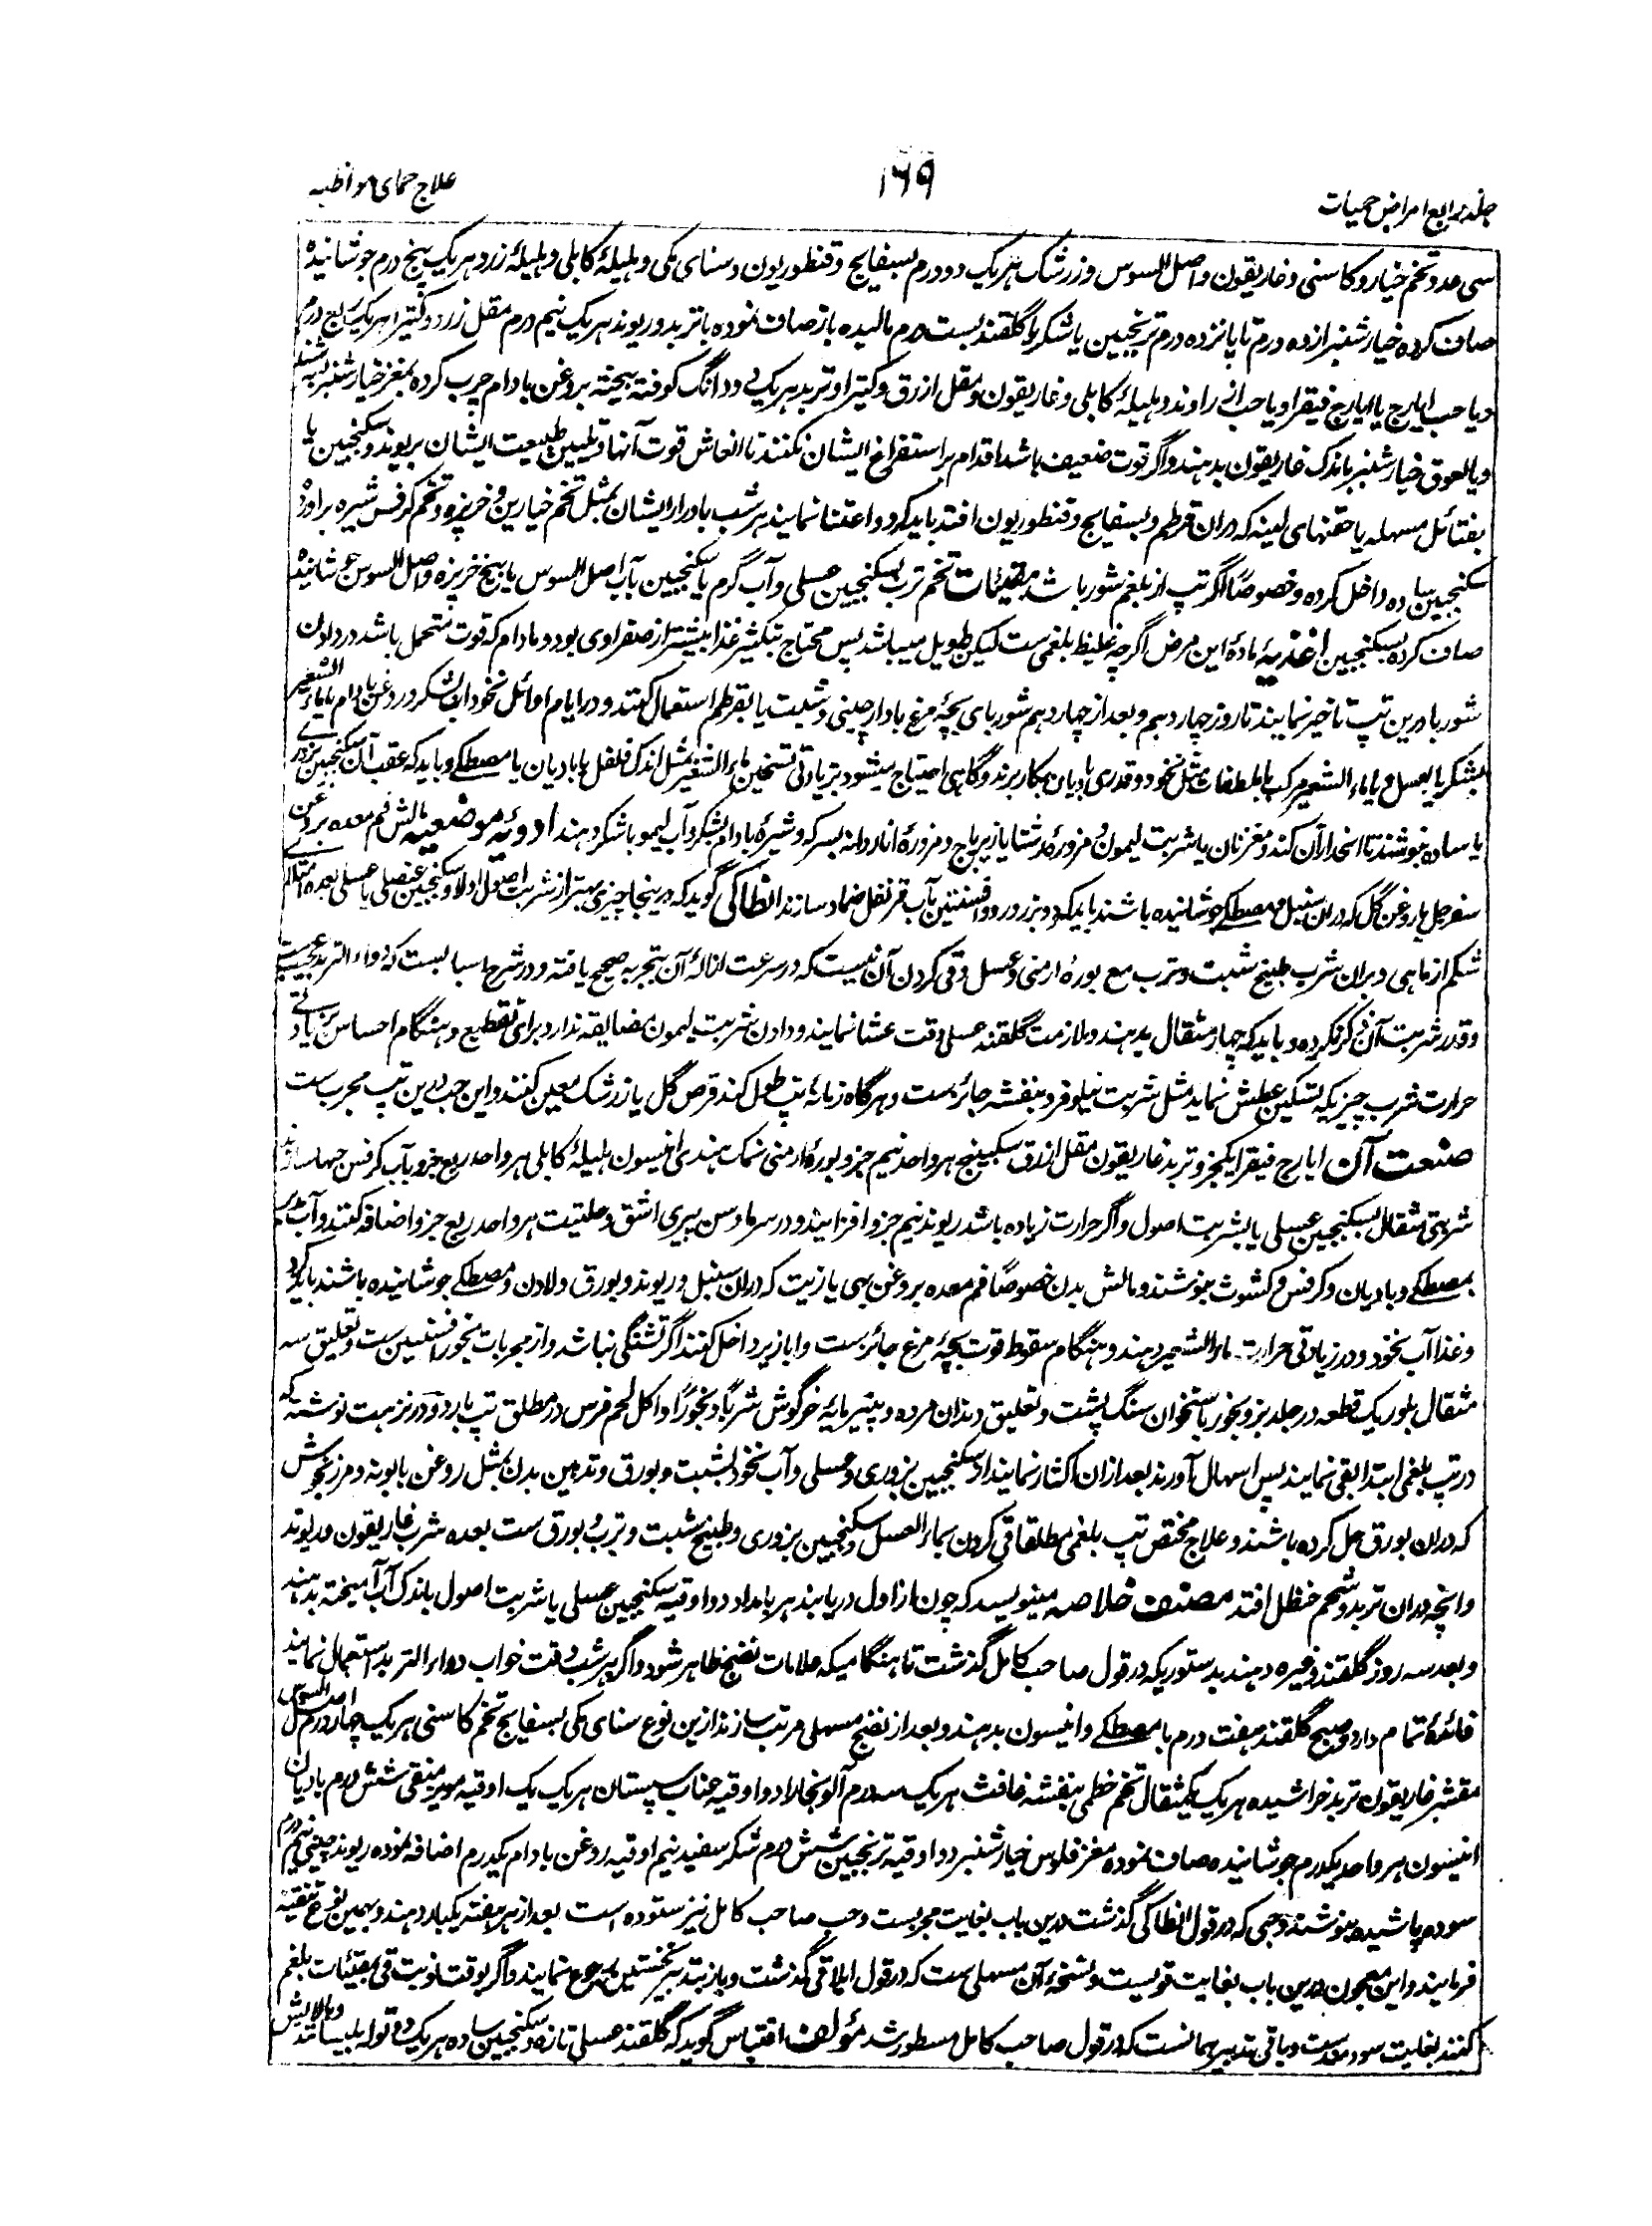 جلد رابع امراض حمیات
۱۶۹
علاج حمای مواظبه
سی عدد و تخم خیار و کاسنی و غاریقون و اصل السوس و زرشک هر یک دو درم بسفایج و قنطوریون و سنای مکی و هلیلهٔ کابلی و هلیلهٔ زرد هر یک پنج درم جوشانیده
صاف کرده خیارشنبر از ده درم تا پانزده درم ترنجبین یا شکر یا گلقند بست درم مالیده باز صاف نموده با تربد و ریوند هر یک نیم درم مقل زرد و کتیرا هر یک ربع درم
و یا حب ایارج یا ایارج فیقرا و یا حب از راوند و هلیلهٔ کابلی و غاریقون و مقل ازرق و کتیرا و تربد هر یک دو دانگ کوفته بیخته بروغن بادام چرب کرده بمغز خیارشنبر سرشته
و یا لعوق خیارشنبر باندک غاریقون بدهند و اگر قوت ضعیف باشد اقدام بر استفراغ ایشان نکنند تا انعاش قوت آنها و تلیین طبیعت ایشان بریوند و سکنجبین یا
بفتائل مسهله یا حقنهای لینه که دران قرطم و بسفایج و قنطوریون افتد باید کرد و اعتنا نمایند هر شب بادرار ایشان بمثل تخم خیارین و خرپزه و تخم کرفس شیره برآورده
سکنجبین ساده داخل کرده و خصوصاً اگر تپ از بلغم شور باشد مقیئات تخم ترب بسکنجبین عسلی و آب گرم یا سکنجبین بآب اصل السوس یا بیخ خرپزه و اصل السوس جوشانیده
صاف کرده بسکنجبین اغذیه مادهٔ این مرض اگرچه غلیظ بلغمی ست لیکن طویل میباشد پس محتاج بتکثیر غذا بیشتر از صفراوی بود و مادام که قوت متحمل باشد در دادن
شوربا درین تپ تاخیر نمایند تا روز چهاردهم و بعد از چهاردهم شوربای بچهٔ مرغ با دارچینی و شبت یا بقرطم استعمال کنند و در ایام اوائل نخوداب بشکر و روغن بادام یا ماء الشعیر
بشکر یا بعسل و یا ماء الشعیر مرکب با ملطفات مثل نخود و قدری بادیان بکار برند و گاهی احتیاج میشود بزیادتی تسخین ماء الشعیر بمثل اندک فلفل یا بادیان یا مصطکی و باید که عقب آن سکنجبین بزوری
یا ساده بنوشند تا انحدار آن کند و مغز نان یا شربت لیمون و مزورهٔ رشتا یا زیرباج و مزورهٔ اناردانه بسرکه و شیرهٔ بادام بشکر و آب لیمو با شکر دهند ادویهٔ موضعیه مالش فم معده بروغن
سفرجل یا روغن گل که دران سنبل و مصطکی جوشانیده باشند باید کرد و بزر ورد و افسنتین بآب قرنفل ضماد سازند انطاکی گوید که درینجا چیزی بهتر از شربت اصول اولا و سکنجبین عنصلی یا عسلی بعده امتلای
شکم از ماهی و بران شرب طبیخ شبت و ترب مع بورهٔ ارمنی و عسل و قی کردن آن نیست که در سرعت ازالهٔ آن بتجربه صحیح یافته و در شرح اسباب ست که دواء التربد عجیب ست
و قدر شربت آن ذکر نکرده و باید که چهار مثقال بدهند و ملازمت گلقند عسلی وقت عشا نمایند و دادن شربت لیمون مضایقه ندارد برای تقطیع و هنگام احساس بزیادتی
حرارت شرب چیزیکه تسکین عطش نماید مثل شربت نیلوفر و بنفشه جائز ست و هرگاه زمانهٔ تپ طول کند قرص گل یا زرشک معین کنند و این حب درین تپ مجرب ست
صنعت آن ایارج فیقرا یکجزو تربد غاریقون مقل ازرق سکبینج هر واحد نیم جزو بورهٔ ارمنی نمک هندی انیسون هلیلهٔ کابلی هر واحد ربع جزو بآب کرفس حبها سازند
شربتی مثقال بسکنجبین عسلی یا بشربت اصول و اگر حرارت زیاده باشد ریوند نیم جزو افزایند و در سرما و سن پیری اشق و حلتیت هر واحد ربع جزو اضافه کنند و آب
بمصطکی و بادیان و کرفس و کشوث بنوشند و مالش بدن خصوصاً فم معده بروغن بهی یا زیت که دران سنبل و ریوند و بورق و لادن و مصطکی جوشانیده باشند باید کرد
و غذا آب نخود و در زیادتی حرارت ماء الشعیر دهند و هنگام سقوط قوت بچهٔ مرغ جائز ست و ابازیر داخل کنند اگر تشنگی نباشد و از مجربات بخور افسنتین ست و تعلیق سه
مثقال بلور یک قطعه در جلد بز و بخور باستخوان سنگ پشت و تعلیق دندان مرده و پنیرمایهٔ خرگوش شرباً و بخوراً و اکل لحم فرس در مطلق تپ بارد و در نزهت نوشته که
در تپ بلغمی ابتدا بقی نمایند پس اسهال آورند بعد ازان اکثار نمایند از سکنجبین بزوری و عسلی و آب نخود بشبت و بورق و تدهین بدن بمثل روغن بابونه و مرزنجوش
که دران بورق حل کرده باشند و علاج مختص تپ بلغمی مطلقا قی کردن بماء العسل و سکنجبین بزوری و طبیخ شبت و ترب و بورق ست بعده شرب غاریقون و ریوند
و انچه دران تربد و شحم حنظل افتد مصنف خلاصه مینویسد که چون از اول دریابند هر بامداد دو اوقیه سکنجبین عسلی یا شربت اصول باندک آب آمیخته بدهند
و بعد سه روز گلقند وغیره دهند بدستوریکه در قول صاحب کامل گذشت تا هنگامیکه علامات نضج ظاهر شود و اگر هر شب وقت خواب دواء التربد استعمال نمایند
فائدهٔ تمام دارد و صبح گلقند هفت درم با مصطکی و انیسون بدهند و بعد از نضج مسهلی مرتب سازند ازین نوع سنای مکی بسفایج تخم کاسنی هر یک چهار درم اصل السوس
مقشر غاریقون تربد خراشیده هر یک یکمثقال تخم خطمی بنفشه غافث هر یک سه درم آلوبخارا دو اوقیه عناب سپستان هر یک یک اوقیه مویز منقی شش درم بادیان
انیسون هر واحد یکدرم جوشانیده صاف نموده مغز فلوس خیارشنبر دو اوقیه ترنجبین شش درم شکر سفید نیم اوقیه روغن بادام یکدرم اضافه نموده ریوند چینی نیم درم
سوده پاشیده بنوشند و حبی که در قول انطاکی گذشت درین باب بغایت مجربست و حب صاحب کامل نیز ستوده است بعد از هر هفته یکبار دهند و بهمین نوع تنقیه
فرمایند و این معجون درین باب بغایت قویست و نسخهٔ آن مسهلی ست که در قول ایلاقی گذشت و باز بتدبیر نخستین رجوع نمایند و اگر بوقت نوبت قی بمقیئات بلغم
کنند بغایت سودمندست و باقی تدبیر همانست که در قول صاحب کامل مسطور شد مؤلف اقتباس گوید که گلقند عسلی تازه و سکنجبین ساده هر یک دو توله بلیسانند و بالایش